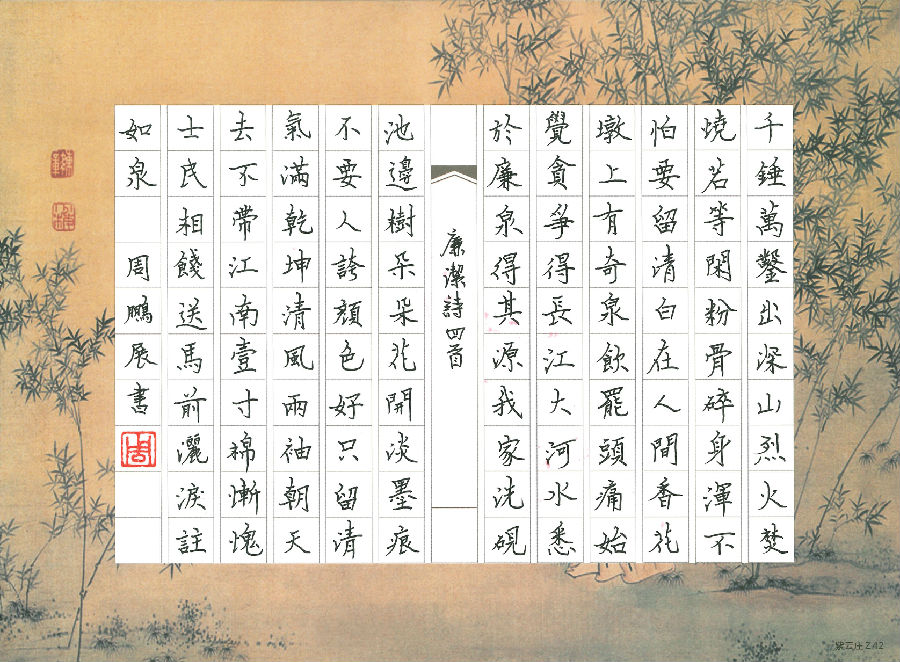 千錘萬鑿出深山烈火焚
燒若等閑粉骨碎身渾不
怕要留清白在人間香花
墩上有奇泉飲罷頭痛始
覺貪爭得長江大河水悉
於廉泉得其源我家洗硯
廉潔詩四首
池邊樹朵朵花開淡墨痕
不要人誇顏色好只留清
氣滿乾坤清風兩袖朝天
去不帶江南壹寸棉慚愧
士民相餞送馬前灑淚註
如泉 周鵬展書
周
紫云庄 Z42